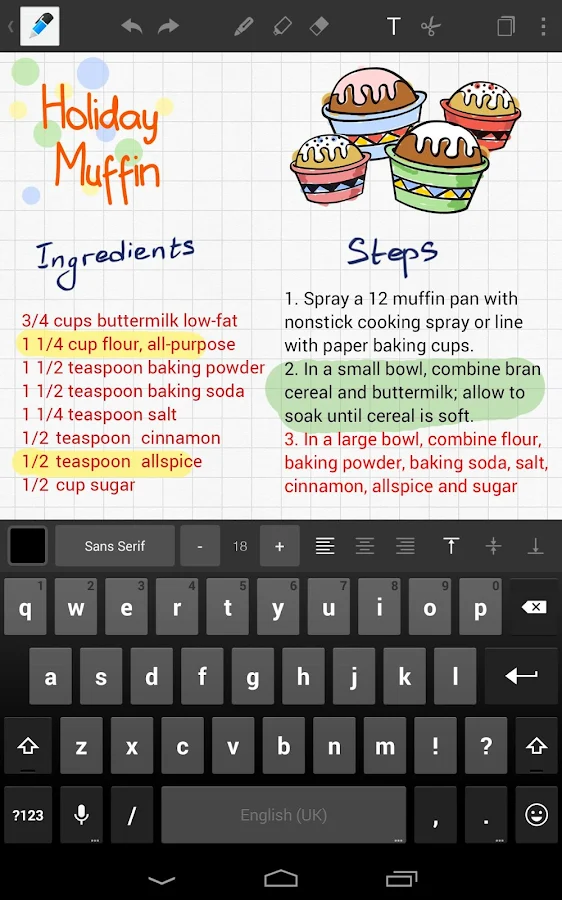 T
Holiday
Muffin
Ingredients
3/4 cups buttermilk low-fat
1 1/4 cup flour, all-purpose
1 1/2 teaspoon baking powder
1 1/2 teaspoon baking soda
1 1/4 teaspoon salt
1/2 teaspoon cinnamon
1/2 teaspoon allspice
1/2 cup sugar
Steps
1. Spray a 12 muffin pan with
nonstick cooking spray or line
with paper baking cups.
2. In a small bowl, combine bran
cereal and buttermilk; allow to
soak until cereal is soft.
3. In a large bowl, combine flour,
baking powder, baking soda, salt,
cinnamon, allspice and sugar
Sans Serif - 18 +
1 2 3 4 5 6 7 8 9 0
q w e r t y u i o p
a s d f g h j k l
z x c v b n m ! ?
?123 / English (UK) , .